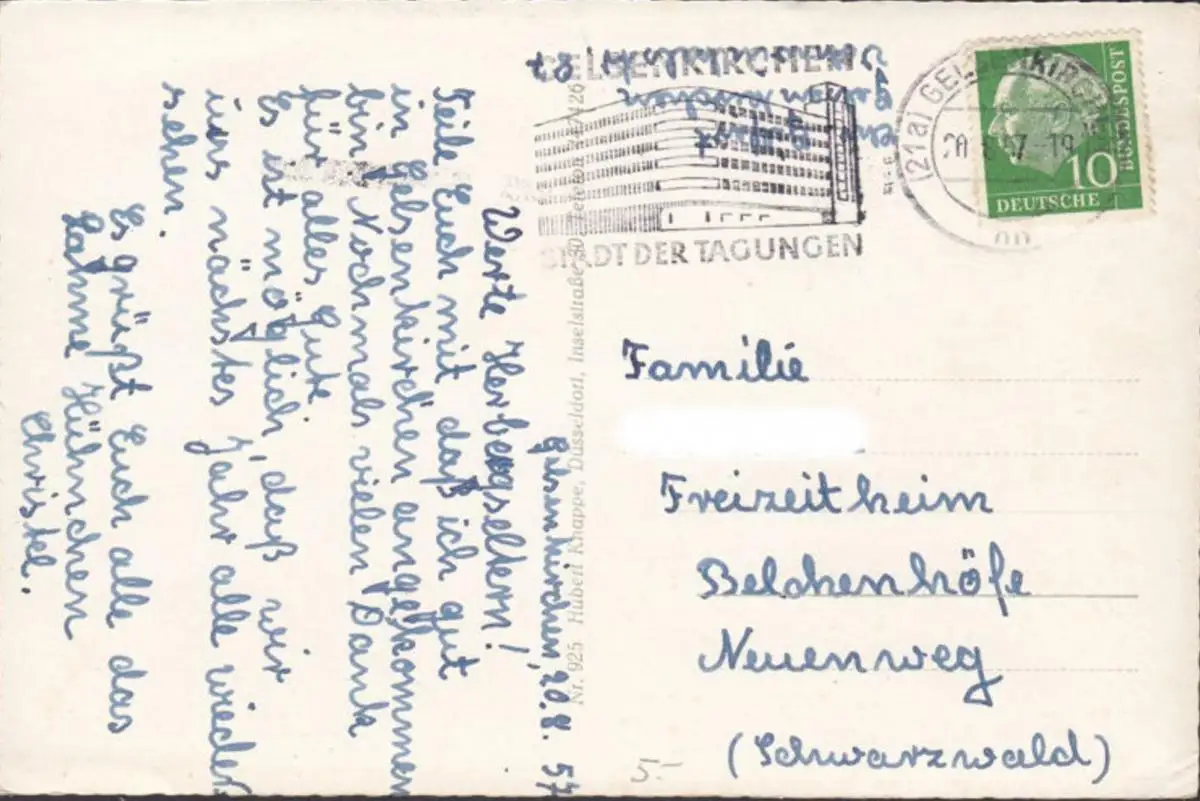 Gelsenkirchen, 20.8.57
Werte Herbergseltern!
Teile Euch mit daß ich gut
in Gelsenkirchen angekommen
bin. Nochmals vielen Dank
für alles Gute.
Es ist möglich, daß wir
uns nächstes Jahr alle wieder
sehen.
Es grüßt Euch alle das
Lahme Hühnchen
Christel.
Nr. 925 Hubert Knappe, Düsseldorf, Inselstraße Telefon
GELSENKIRCHEN
STADT DER TAGUNGEN
(21a) GELSENKIRCHEN
20.8.57-19
10
DEUTSCHE
BUNDESPOST
Gelsenkirchen
Familie
Freizeitheim
Belchenhöfe
Neuenweg
(Schwarzwald)
5.-